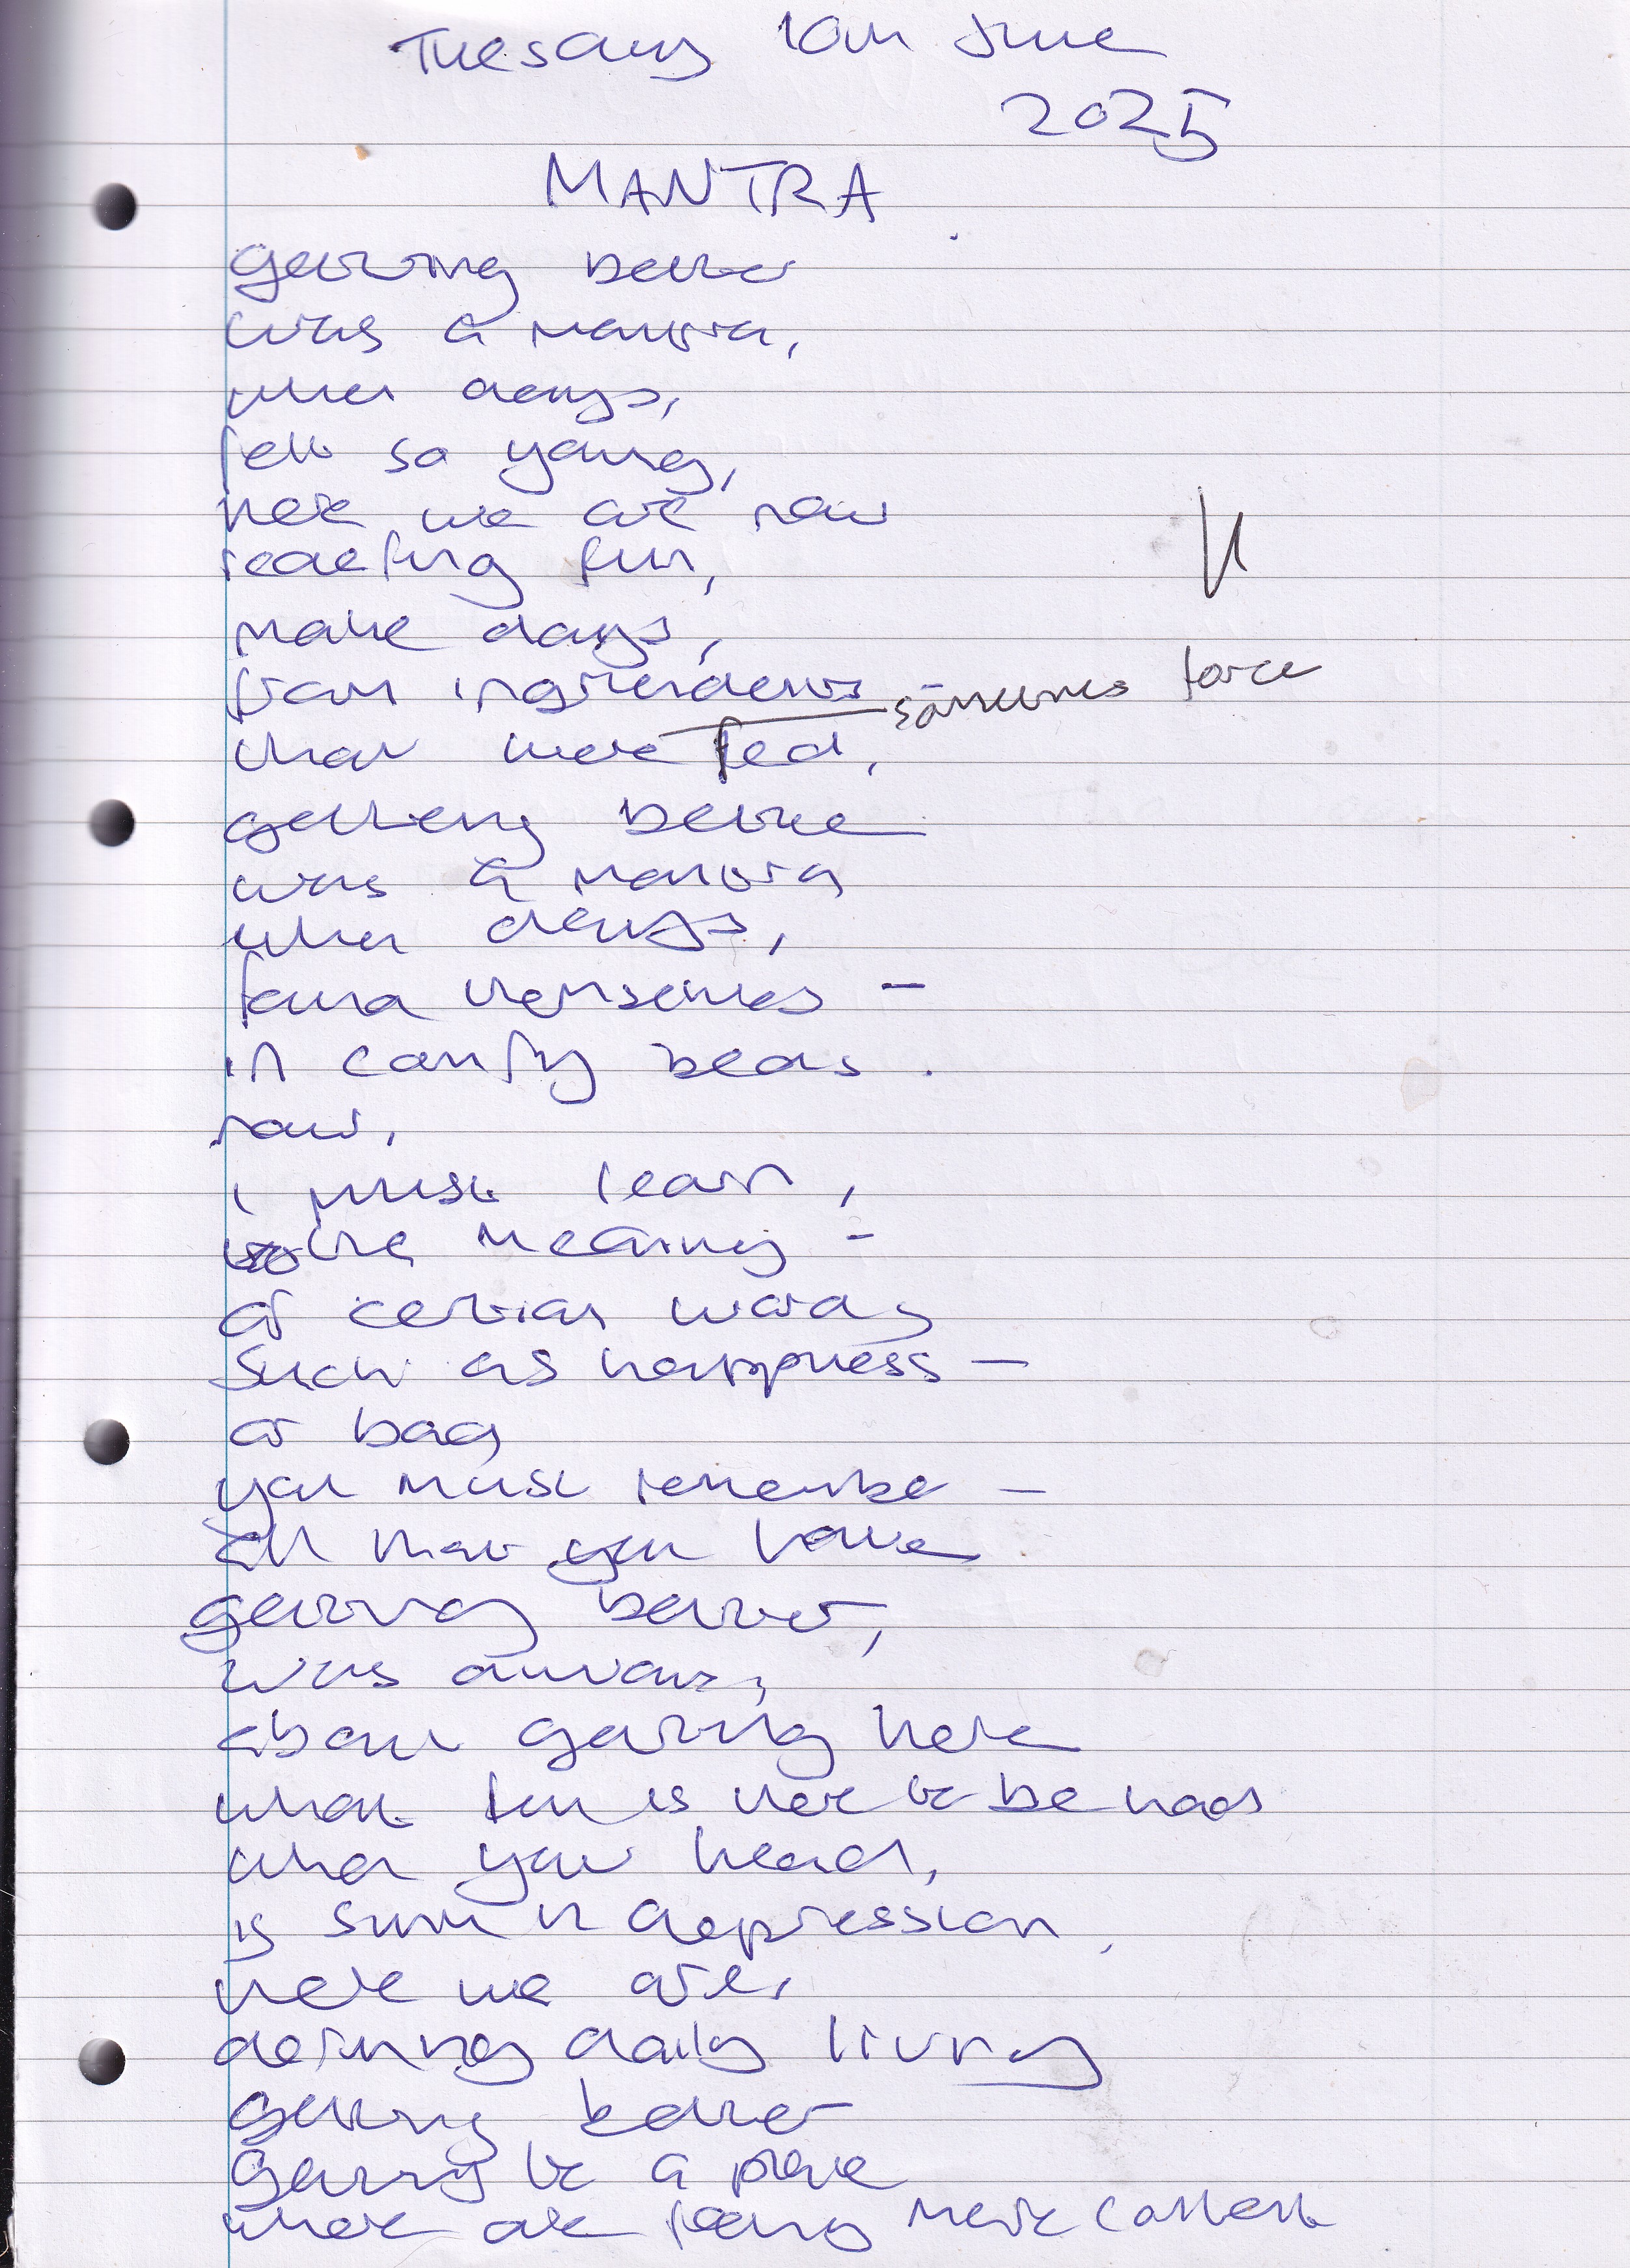 Tuesday 10th June
2025
MANTRA
getting better
was a mantra,
when days,
felt so young,
here we are now
reacting fun,
make days,
from ingredients
sometimes force
that were fed,
getting better
was a mantra
when days,
found themselves -
in comfy beds.
now,
I must learn,
the meaning -
of certain words
such as happiness -
or bag
you must remember -
all that you have
getting better,
was always,
about getting here
what fun is there to be had
when your head,
is sunk in depression,
here we are,
defining daily living
getting better
getting to a place
where are feeling more content